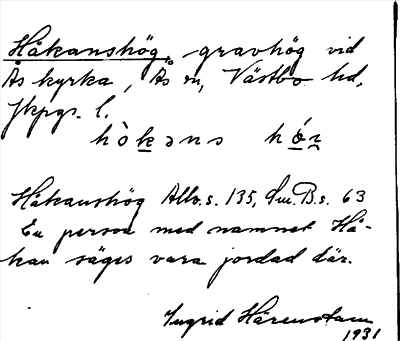 Håkanshög, gravhög vid
Ås kyrka, Ås sn, Västbo hd,
Jkpgs. l.
hò k ə n s h ǿ z
Håkanshög Allv. s. 135, Sm. B. s. 63
En person med namnet Hå-
kan säges vara jordad där.
Ingrid Härenstam
1931